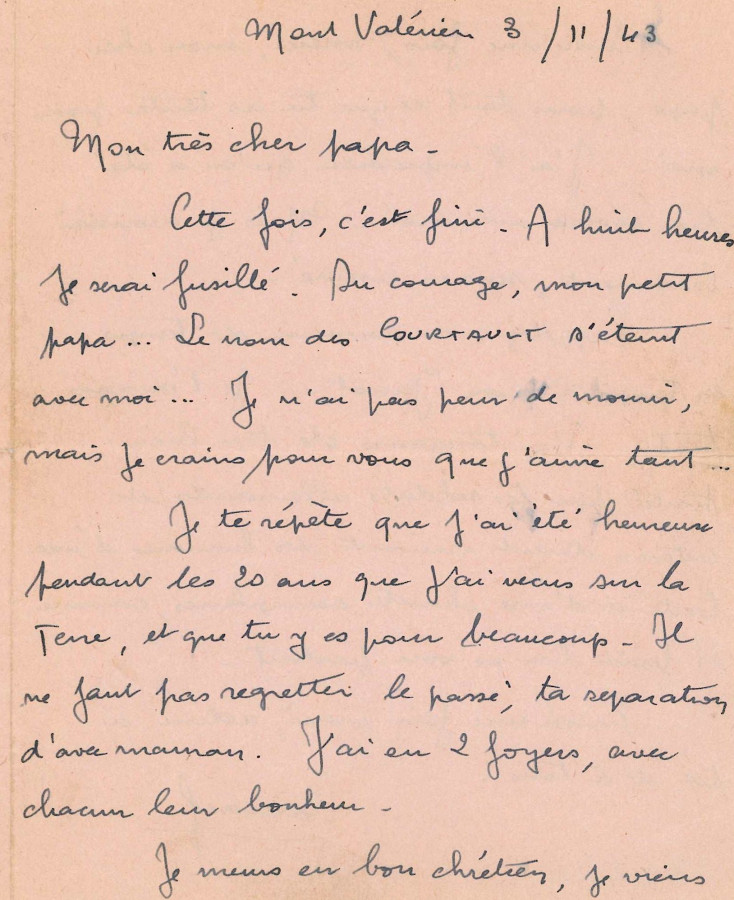 Mont Valérien 3/11/43
Mon très cher papa -
Cette fois, c'est fini - A huit heures
je serai fusillé. Du courage, mon petit
papa... Le nom des COURTAULT s'éteint
avec moi... Je n'ai pas peur de mourir,
mais je crains pour vous que j'aime tant...
Je te répète que j'ai été heureux
pendant les 20 ans que j'ai vécus sur la
Terre, et que tu y es pour beaucoup - Il
ne faut pas regretter le passé, ta séparation
d'avec maman. J'ai eu 2 foyers, avec
chacun leur bonheur -
Je meurs en bon chrétien, je viens